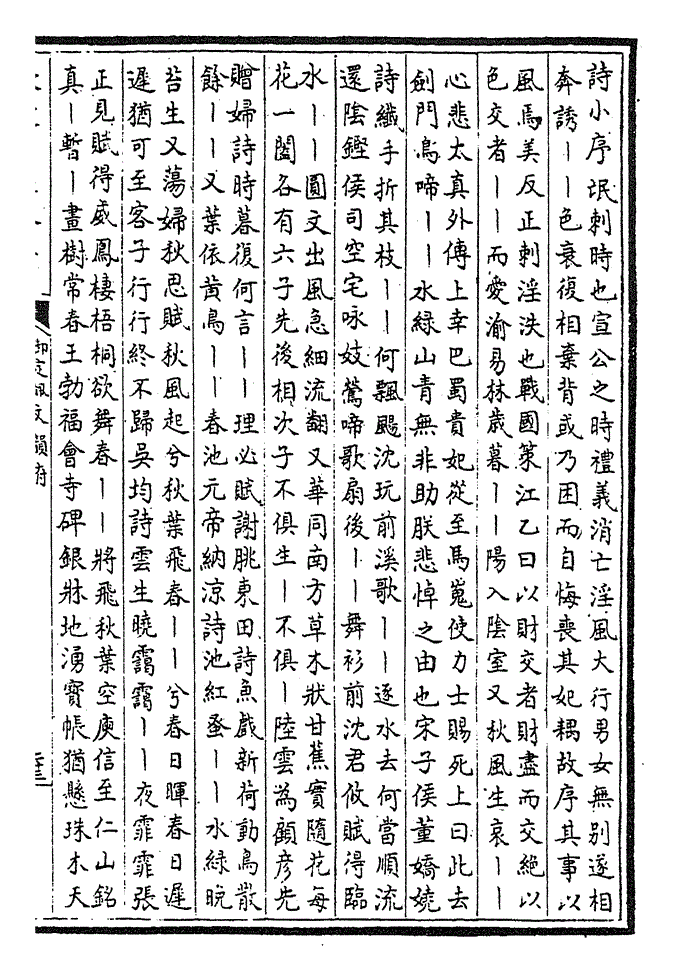 詩小序氓刺時也宣公之時禮義消亡淫風大行男女無别遂相
奔誘丨丨色衰復相棄背或乃困而自悔喪其妃耦故序其事以
風焉美反正刺淫泆也戰國策江乙曰以財交者財盡而交絶以
色交者丨丨而愛渝易林歲暮丨丨陽入陰室又秋風生哀丨丨
心悲太真外傳上幸巴蜀貴妃從至馬嵬使力士賜死上曰此去
劍門鳥啼丨丨水綠山青無非助朕悲悼之由也宋子侯董嬌嬈
詩纖手折其枝丨丨何飄颺沈玩前溪歌丨丨逐水去何當順流
還陰鏗侯司空宅咏妓鶯啼歌扇後丨丨舞衫前沈君攸賦得臨
水丨丨圓文出風急細流翻又華同南方草木狀甘蕉實隨花每
花一闔各有六子先後相次子不俱生丨不俱丨陸雲為顧彦先
贈婦詩時暮復何言丨丨理必賦謝朓東田詩魚戲新荷動鳥散
餘丨丨又葉依黄鳥丨丨春池元帝納涼詩池紅蚤丨丨水綠晚
苔生又蕩婦秋思賦秋風起兮秋葉飛春丨丨兮春日暉春日遲
遲猶可至客子行行終不歸吳均詩雲生曉靄靄丨丨夜霏霏張
正見賦得威鳳棲梧桐欲舞春丨丨將飛秋葉空庾信至仁山銘
真丨暫丨畫樹常春王勃福會寺碑銀牀地湧寶帳猶懸珠木天
御定佩文韻府